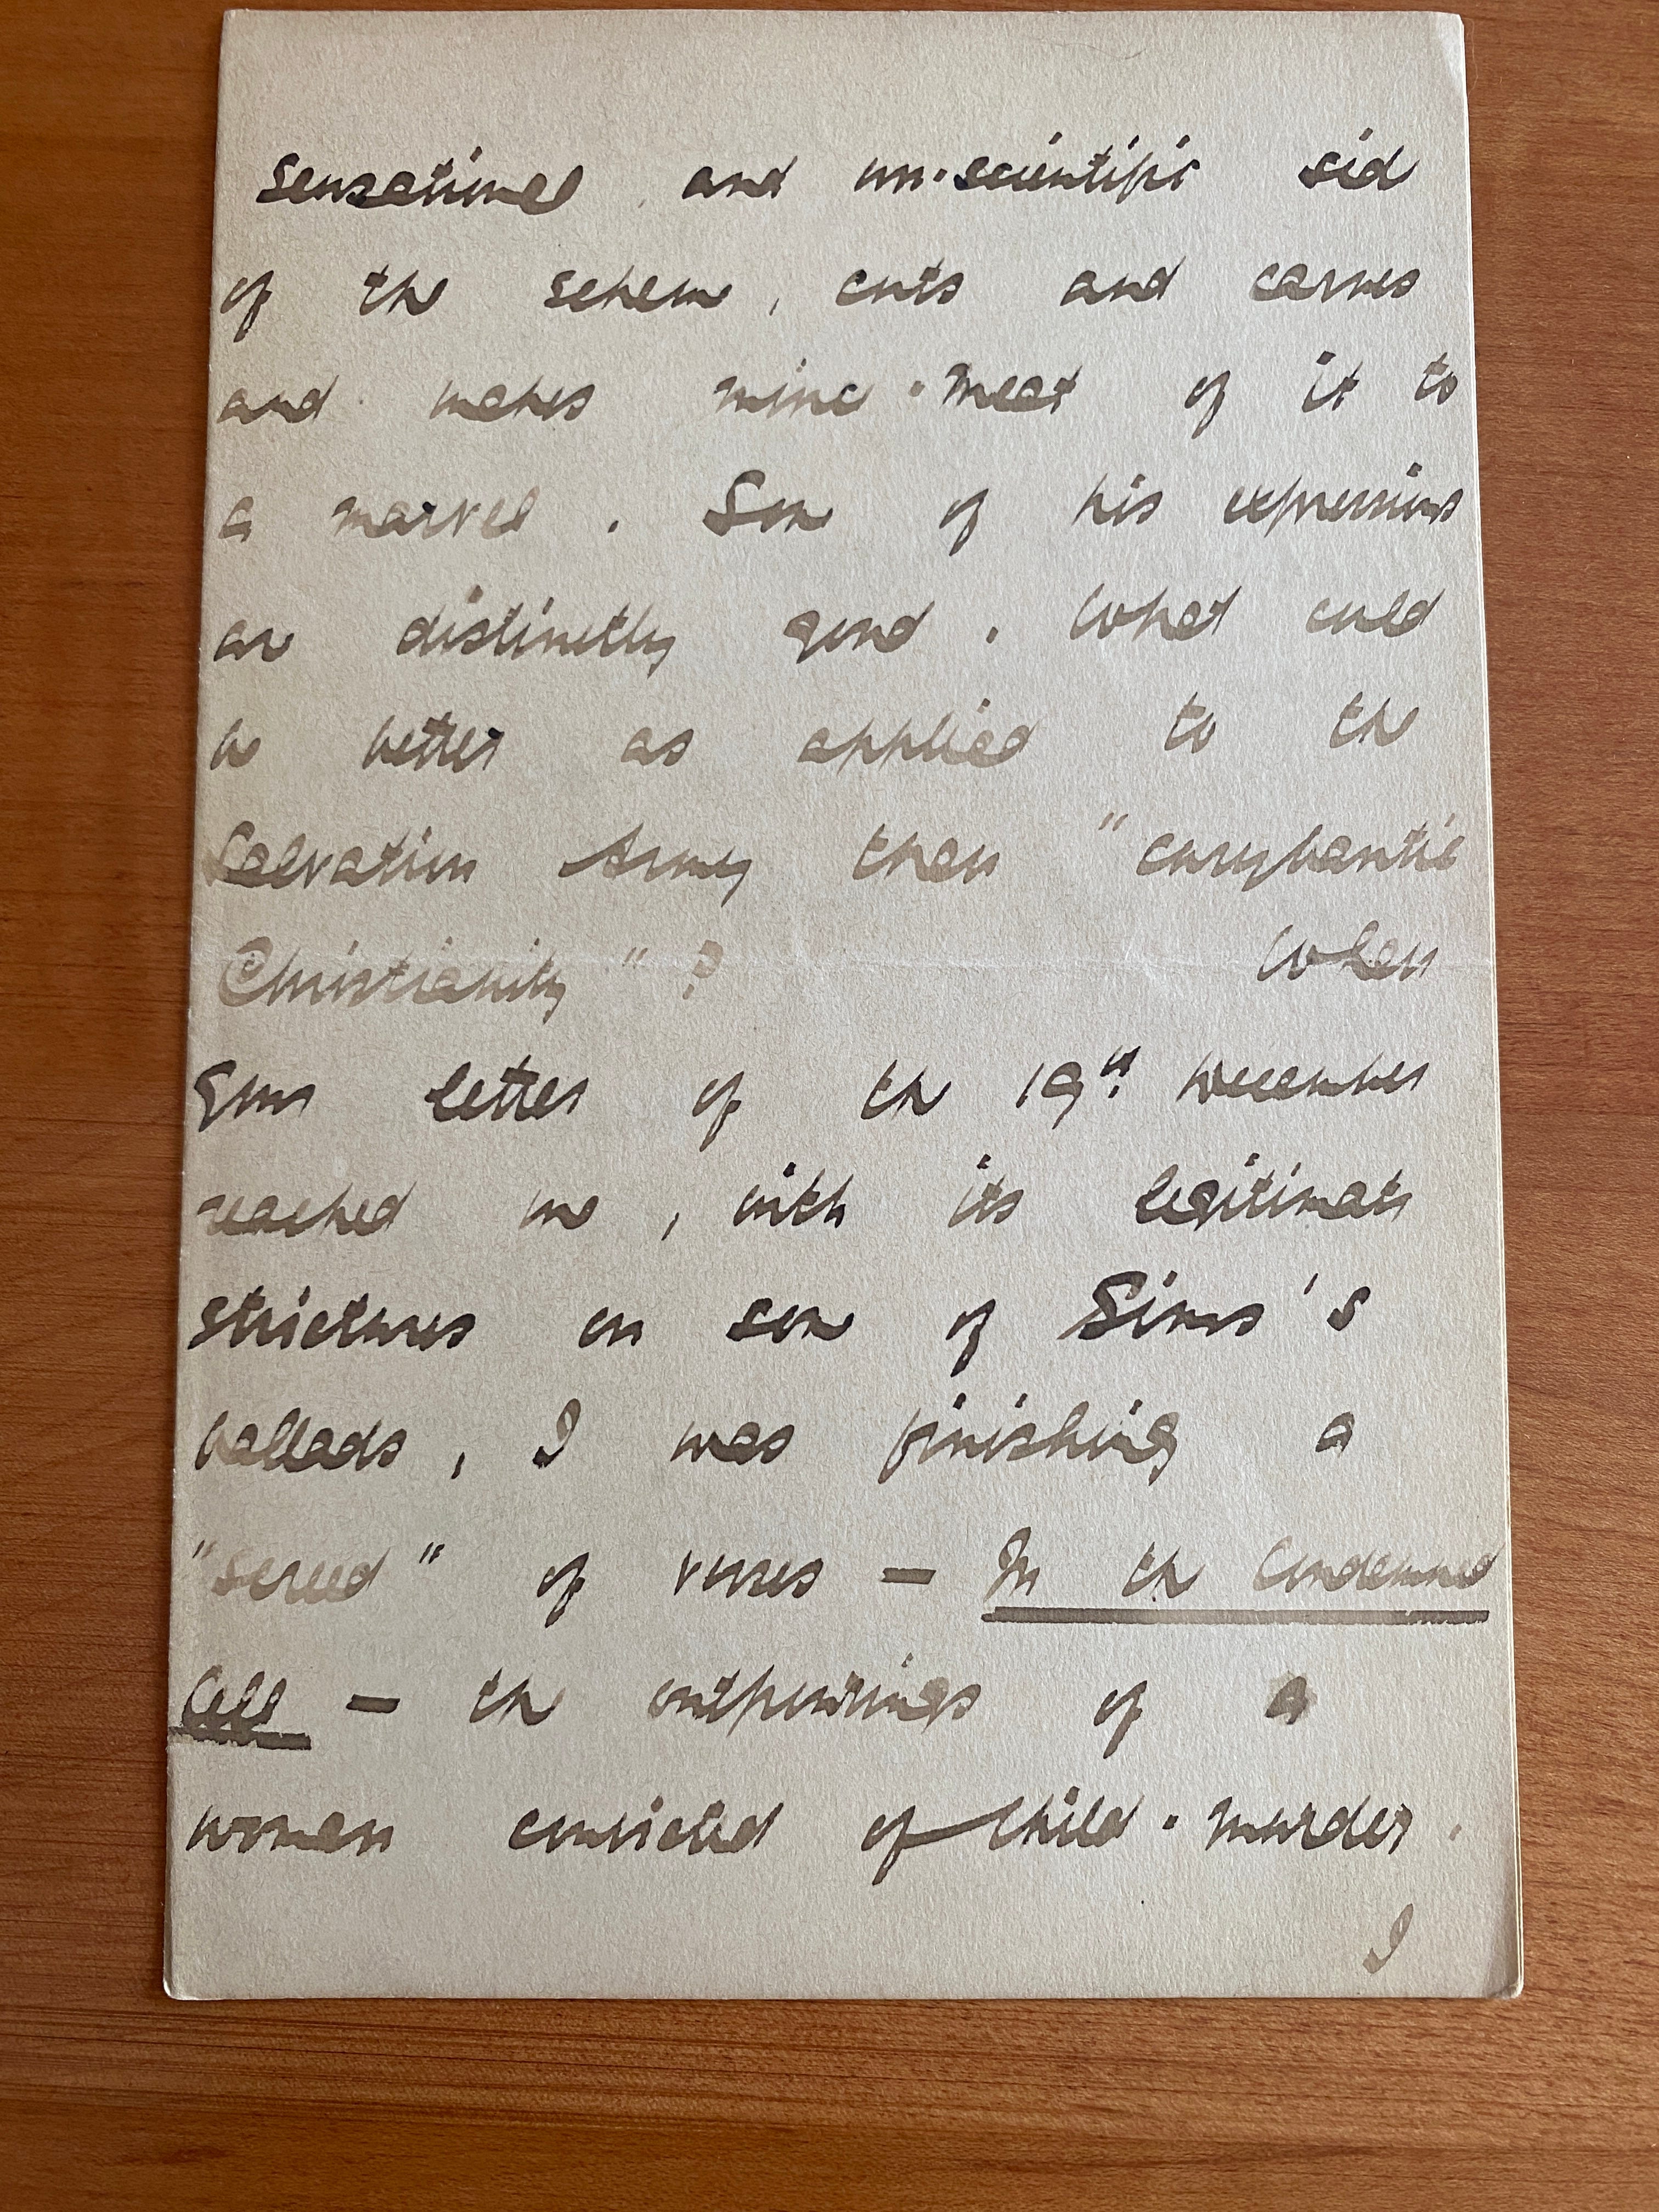 sensational and un-scientific side
of the scheme, cuts and carves
and makes mince-meat of it to
a marvel. Some of his expressions
are distinctly good. What could
be better as applied to the
Salvation Army than "corybantic
Christianity"? When
your letter of the 19th December
reached me, with its legitimate
strictures on some of Sims's
ballads, I was finishing a
"screed" of verses — In the Condemned
Cell — the outpourings of a
woman convicted of child-murder.
I